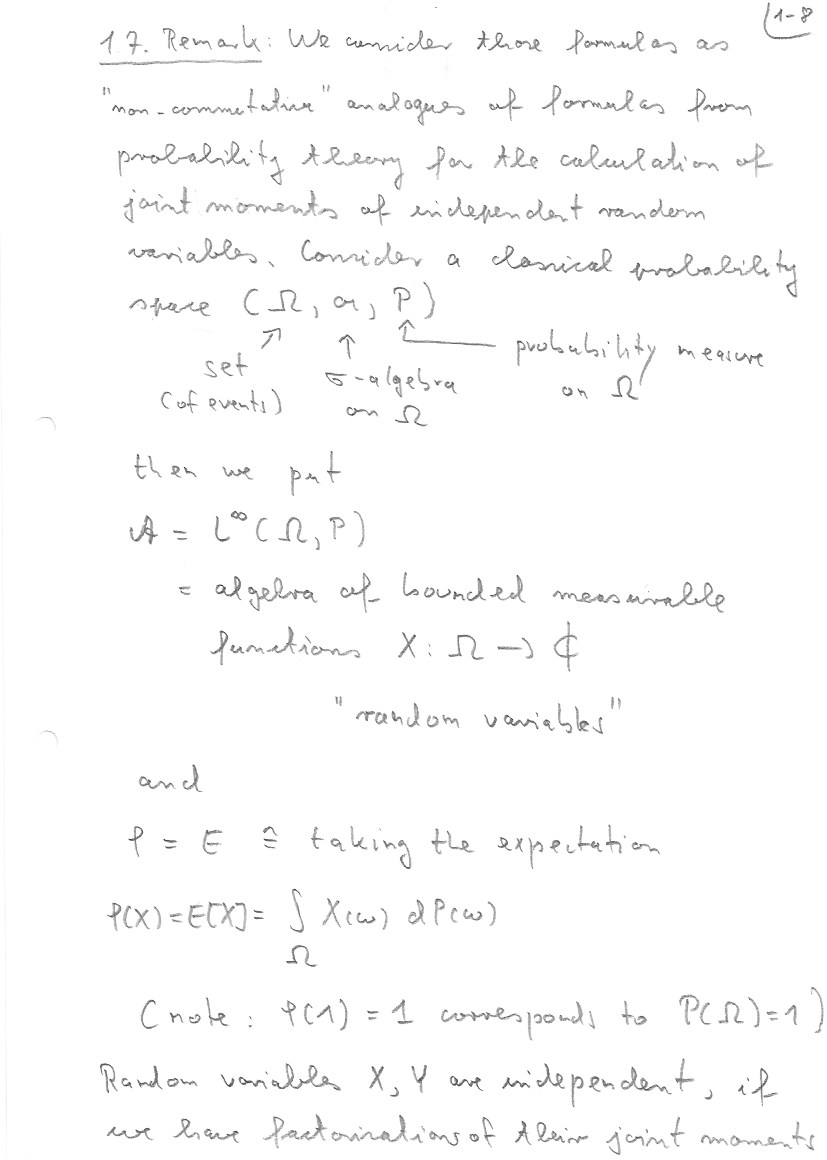 1-8
1.7. Remark: We consider those formulas as
"non-commutative" analogues of formulas from
probability theory for the calculation of
joint moments of independent random
variables. Consider a classical probability
space (Ω, 𝔄, P)
set
(of events)
σ-algebra
on Ω
probability measure
on Ω
then we put
𝒜 = L^∞(Ω, P)
= algebra of bounded measurable
functions X: Ω → ℂ
"random variables"
and
φ = E ≙ taking the expectation
φ(X) = E[X] = ∫_Ω X(ω) dP(ω)
(note: φ(1) = 1 corresponds to P(Ω)=1)
Random variables X, Y are independent, if
we have factorizations of their joint moments